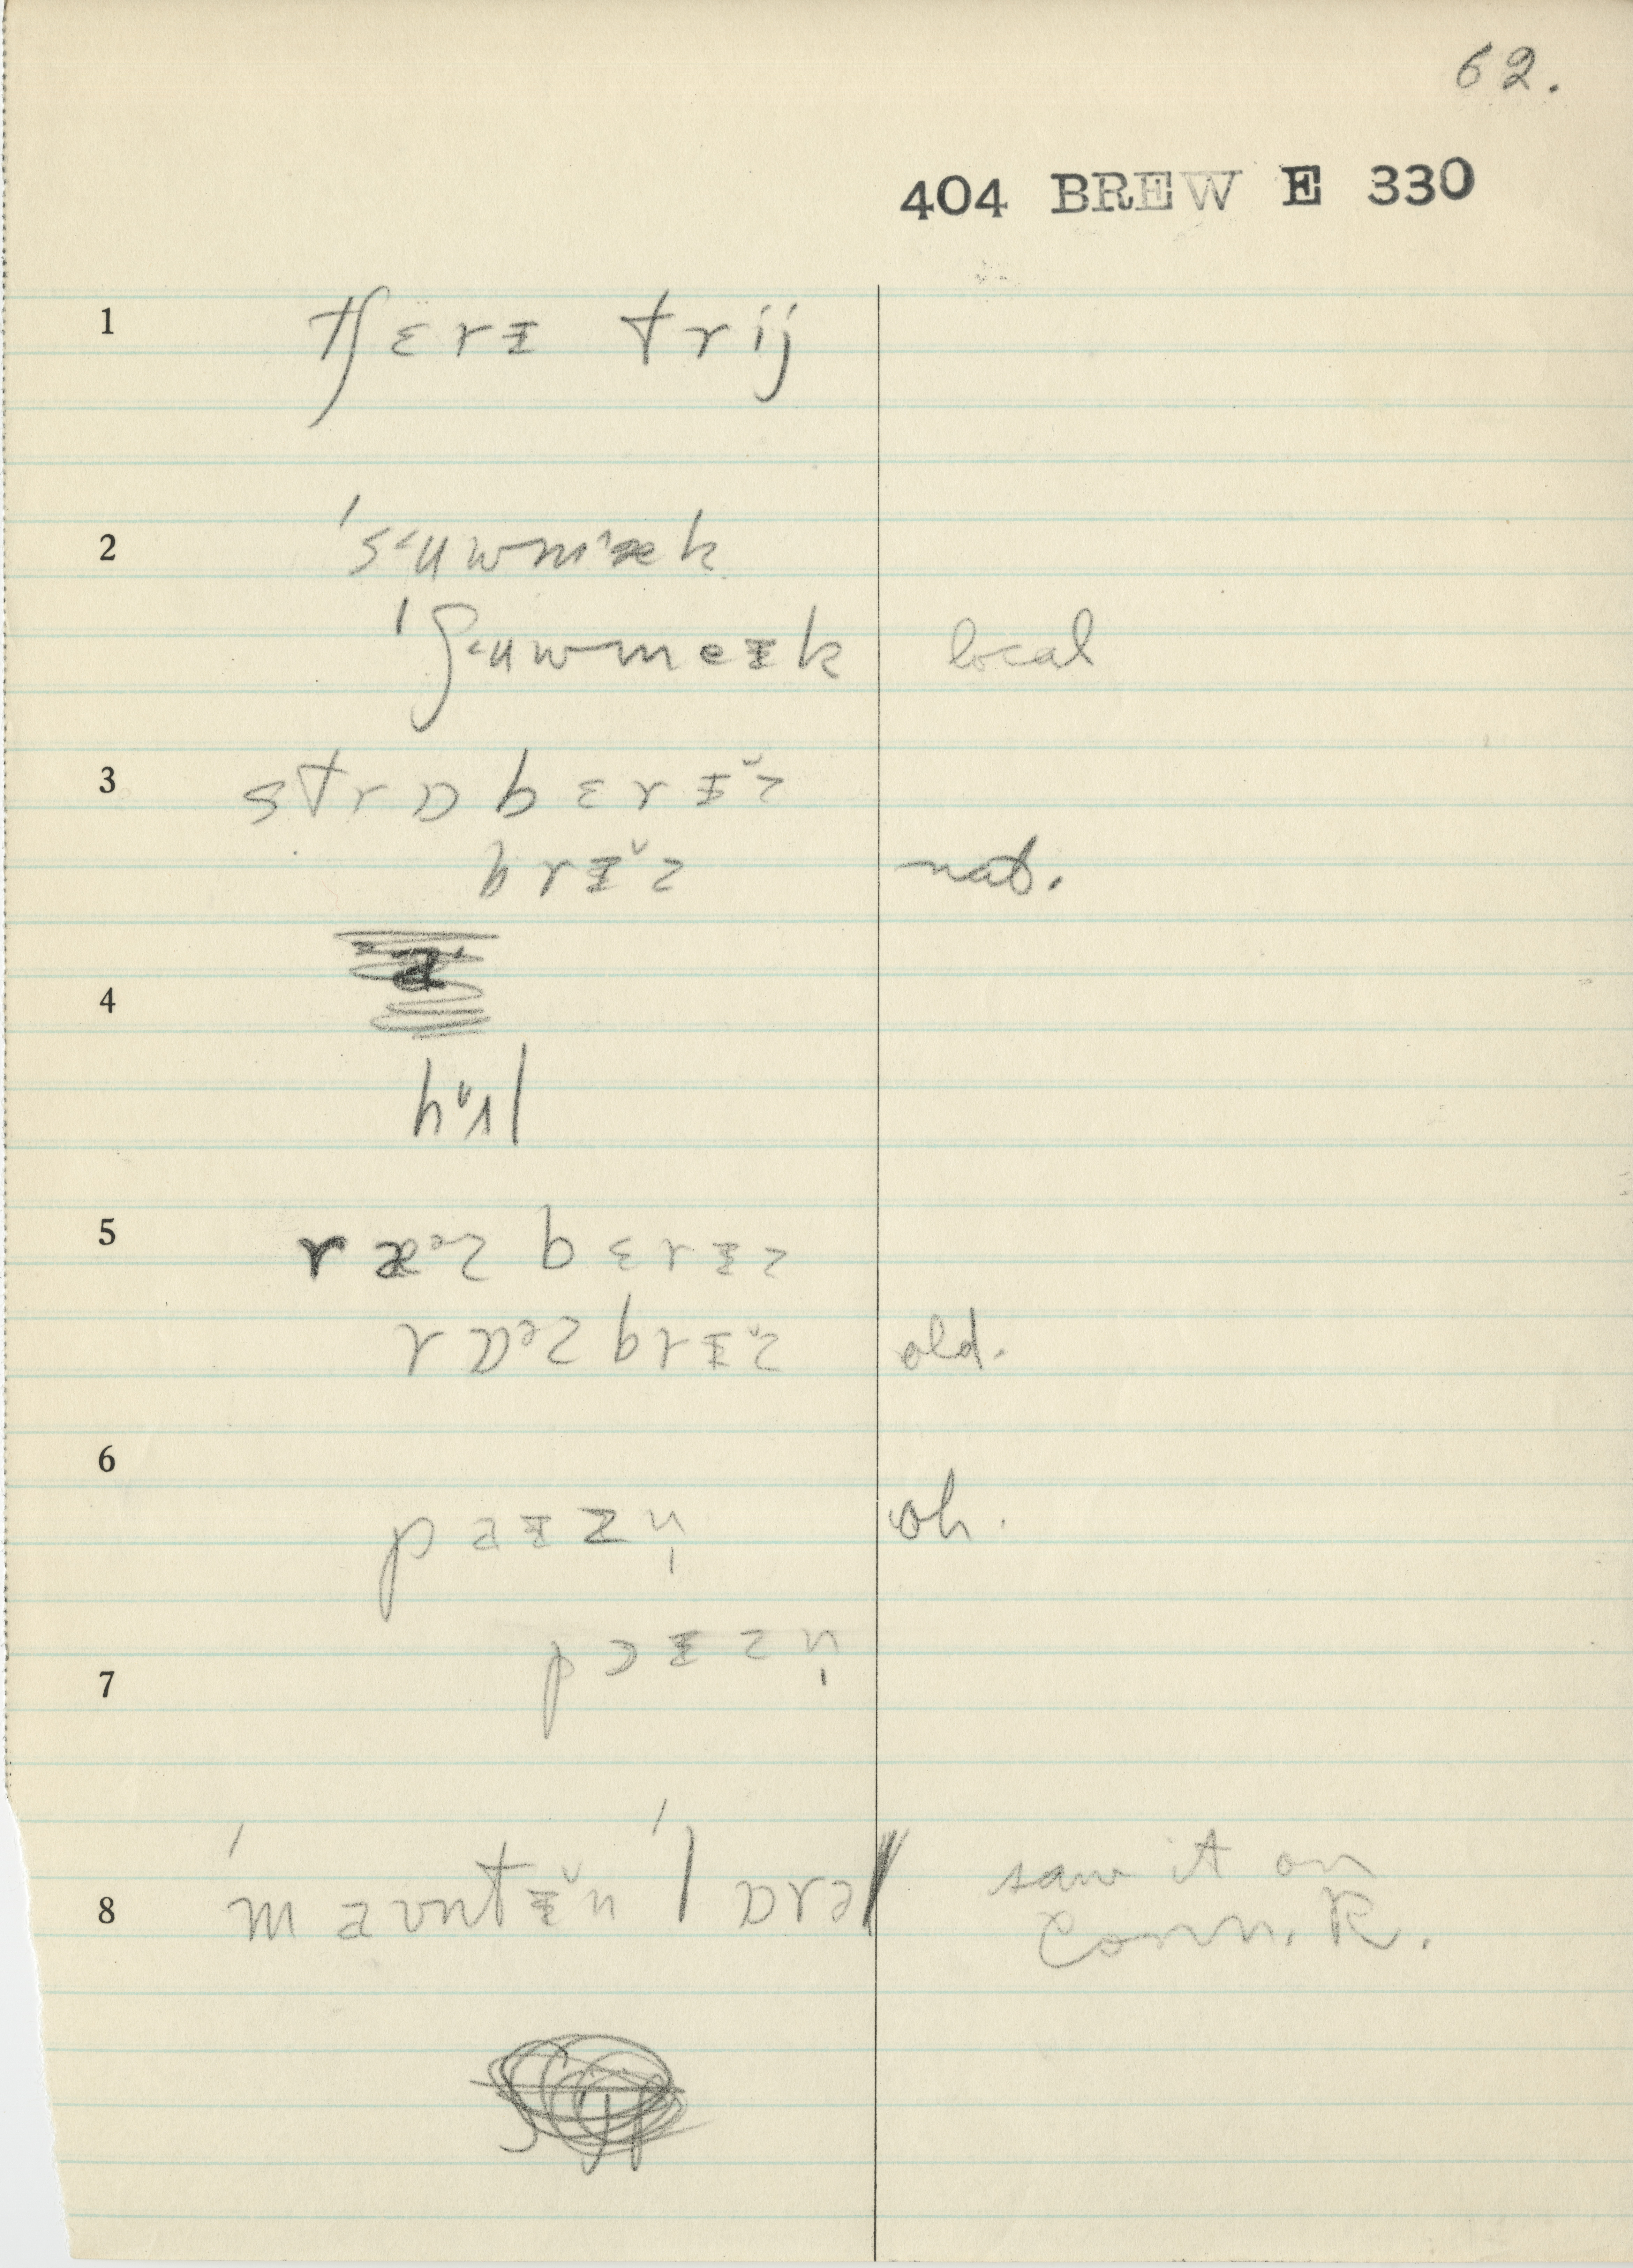 62.
404 BREW E 330
1 tʃɛrɪ trij
2 ˈsʉwmæk
ˈʃʉwmeɪk local
3 strɒbɛrɪz
brɪz nat.
4
hʌl
5 ræzbɛrɪz
rɒzbrɪz old.
6 paɪzn̩ oh.
7 pɔɪzn̩
8 ˈmaʊntɪn ˈlɒrəl saw it on
Conn. R.